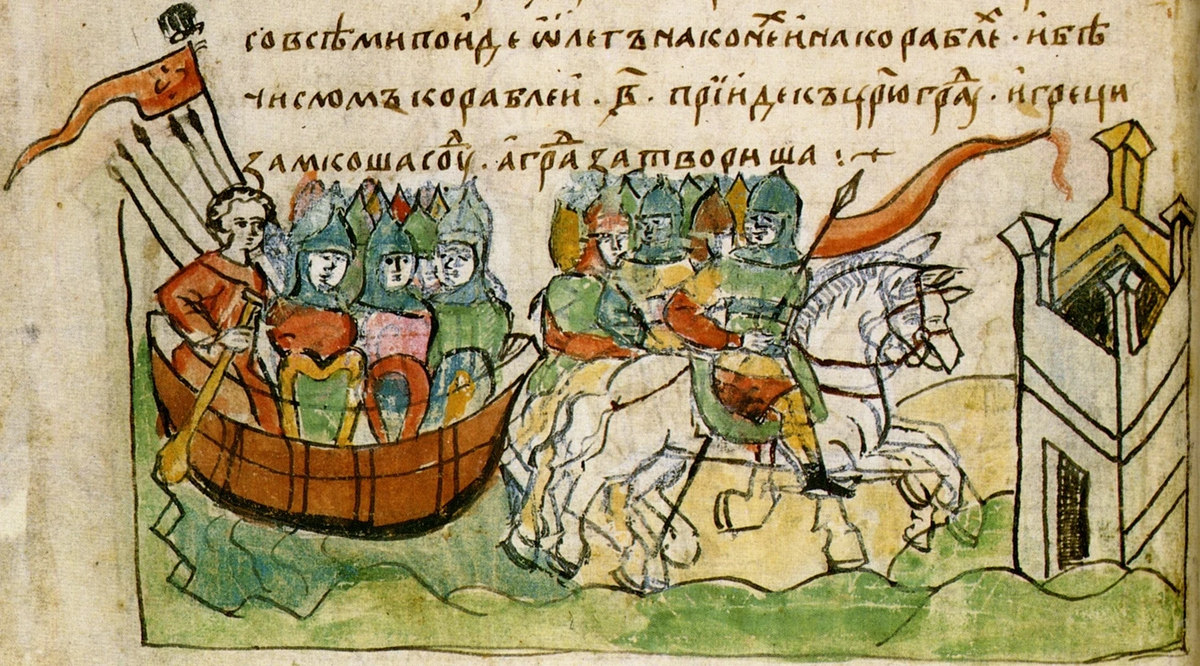 совсѣми поиде ѡлегъ на конеⷯ и на кораблеⷯ · и бѣ
числомъ кораблеи · в҃ · прїиде къ цр҃ю граⷣу · и греци
замкоша соуⷣ · а граⷣ затвориша :~